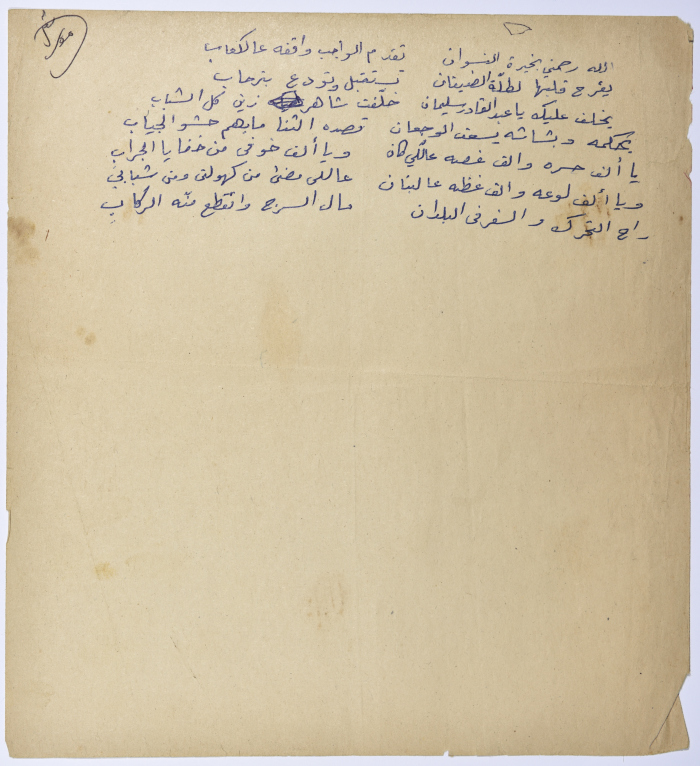 الله رحمني بخيرة النسوان تقدم الواجب واقفه عالكعاب
يفرح قلبها لطلّة الضيفان تستقبل وتودع بترحاب
يخلف عليك يا عبدالقادر سليمان خلّفت شاهر زين كل الشباب
بحكمه وبشاشه يسعف الوجعان قصده الثنا مابهم حشو الجياب
يا ألف حسره والف غصه عاللّي كان ويا ألف خوفي من خفايا الجراب
ويا ألف لوعه والف غظه عالبنان عاللي مضى من كهولتي ومن شبابي
راح التحرك والسفر في البلدان مال السرج وانقطع منّه الركابِ